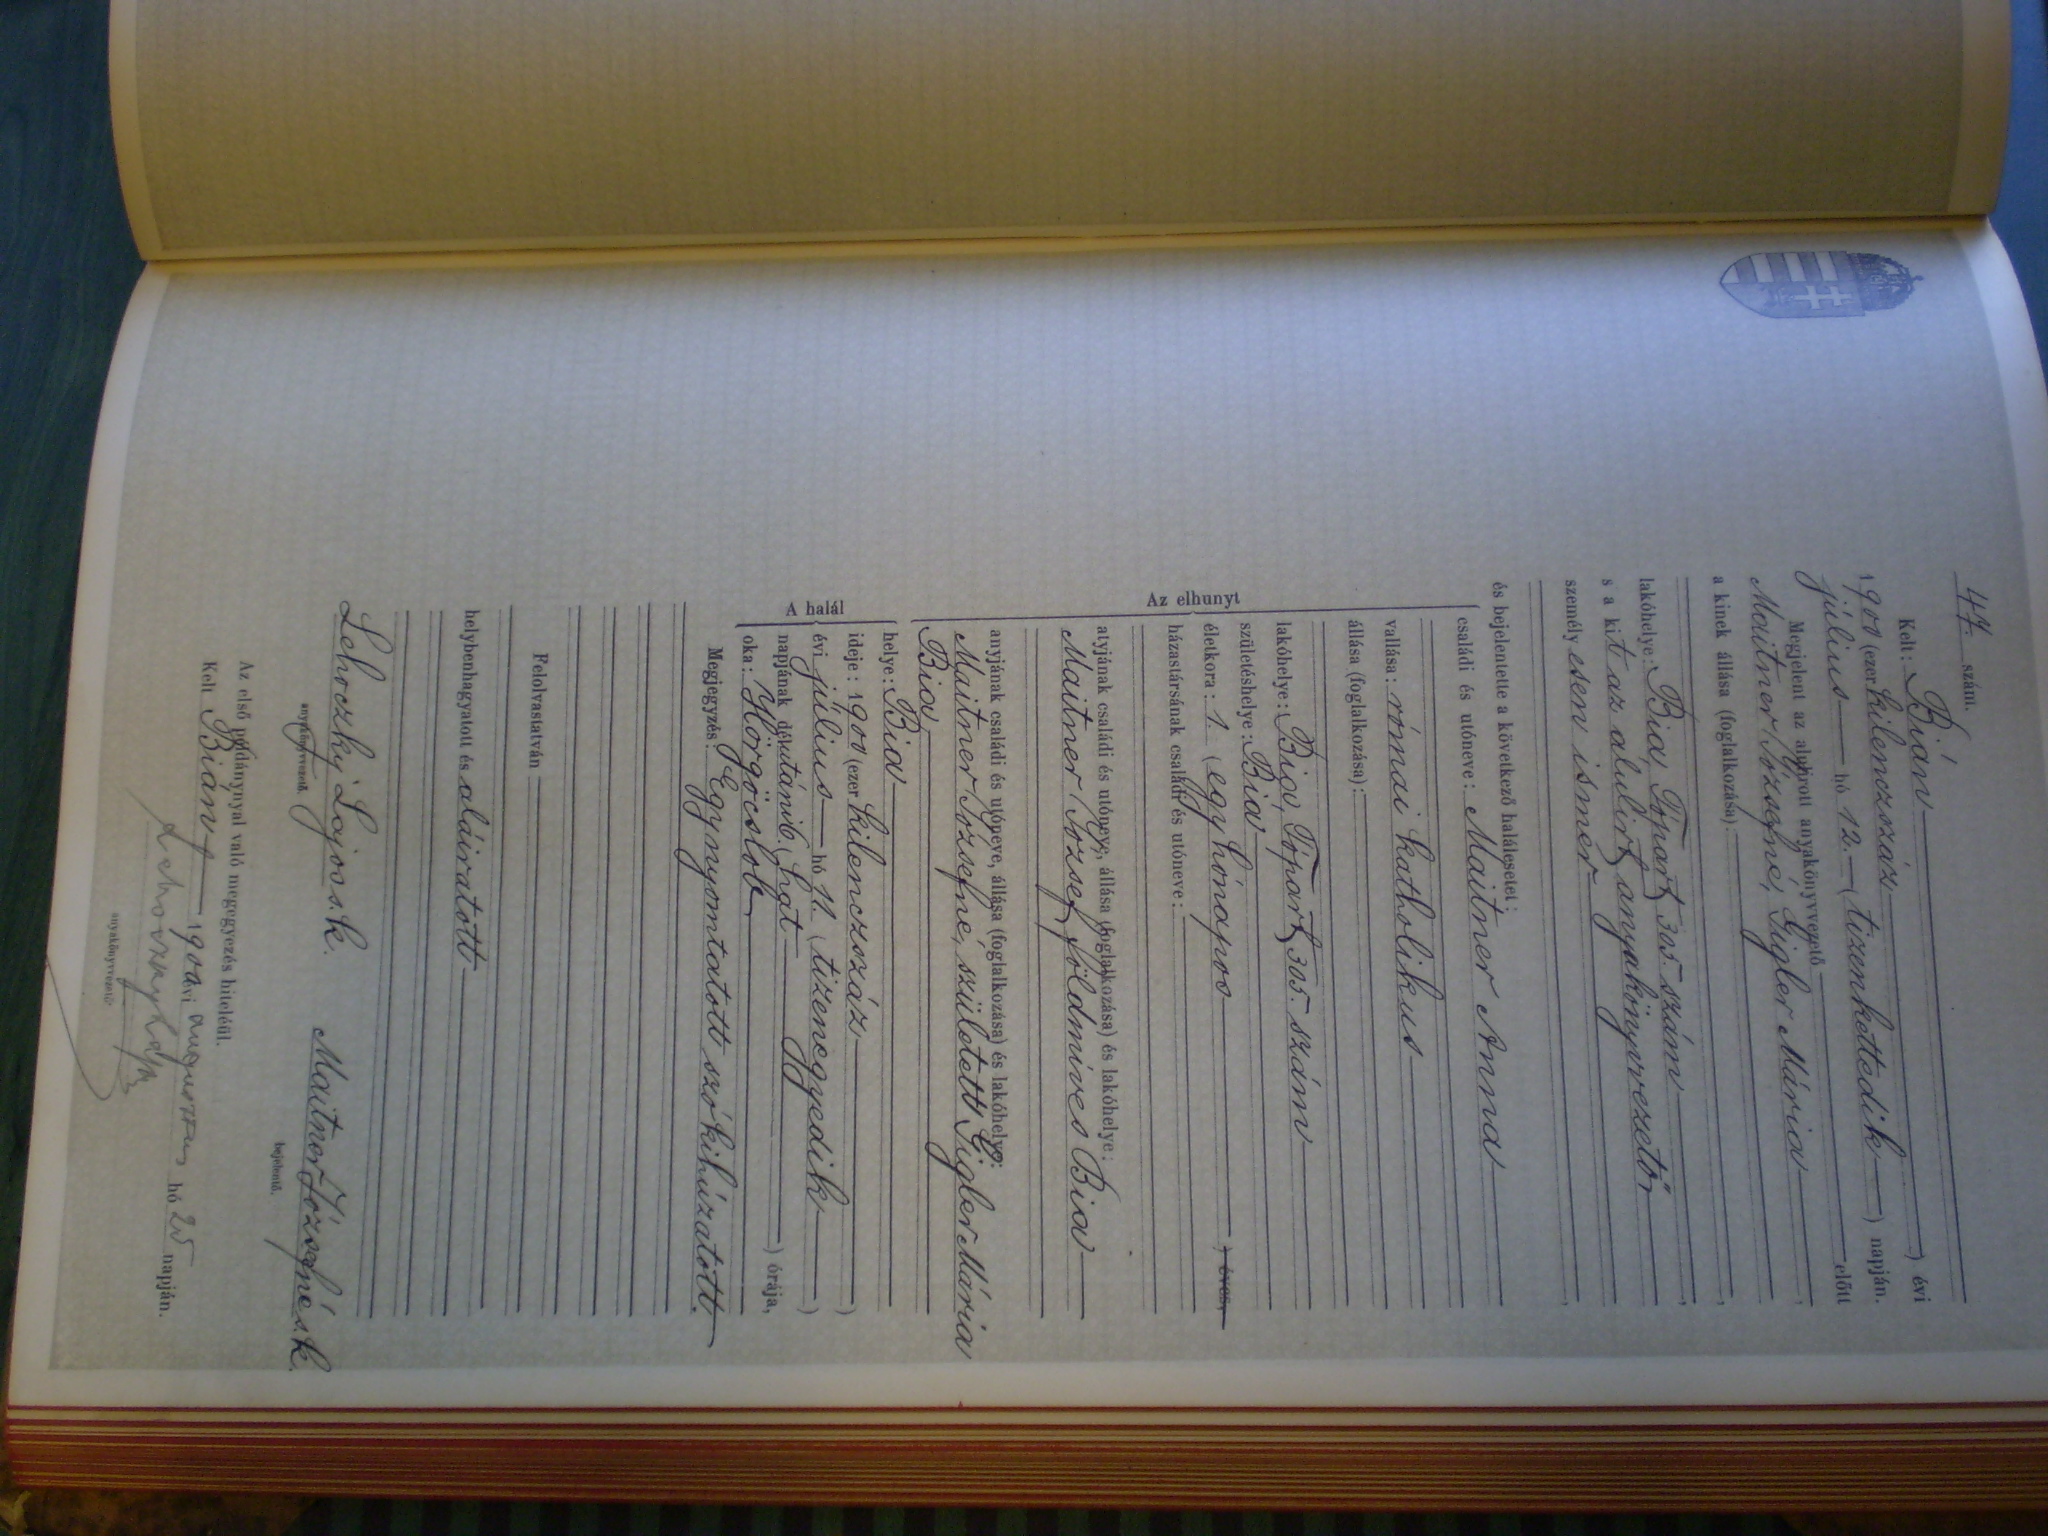 47. szám.
Kelt: Bián
1900 (ezer kilenczszáz ) évi
július hó 12. (tizenkettedik ) napján.
Megjelent az alulirott anyakönyvvezető előtt
Maitner Józsefné, Gigler Mária,
a kinek állása (foglalkozása):
,
lakóhelye: Bia, Tópart 305. szám,
s a kit az alulirt anyakönyvvezető
személyesen ismer,
és bejelentette a következő halálesetet:
Az elhunyt
családi és utóneve: Maitner Anna
vallása: római katholikus
állása (foglalkozása):
lakóhelye: Bia, Tópart 305. szám
születéshelye: Bia
életkora: 1. (egy hónapos ) éves,
házastársának családi és utóneve:
atyjának családi és utóneve, állása (foglalkozása) és lakóhelye:
Maitner József, földmíves Bia
anyjának családi és utóneve, állása (foglalkozása) és lakóhelye:
Maitner Józsefné, született Gigler Mária
Bia,
A halál
helye: Bia
ideje: 1900 (ezer kilenczszáz )
évi július hó 11. (tizenegyedik )
napjának délutáni 6. (hat ) órája,
oka: Görgöcslob
Megjegyzés: Egy nyomtatott szó kihúzatott.
Felolvastatván
helybenhagyatott és aláiratott
Lehoczky Lajos s.k. Maitner Józsefné s.k.
anyakönyvvezető. bejelentő.
Az első példánynyal való megegyezés hiteléül.
Kelt Bián, 1900 évi augusztus hó 25 napján.
anyakönyvvezető